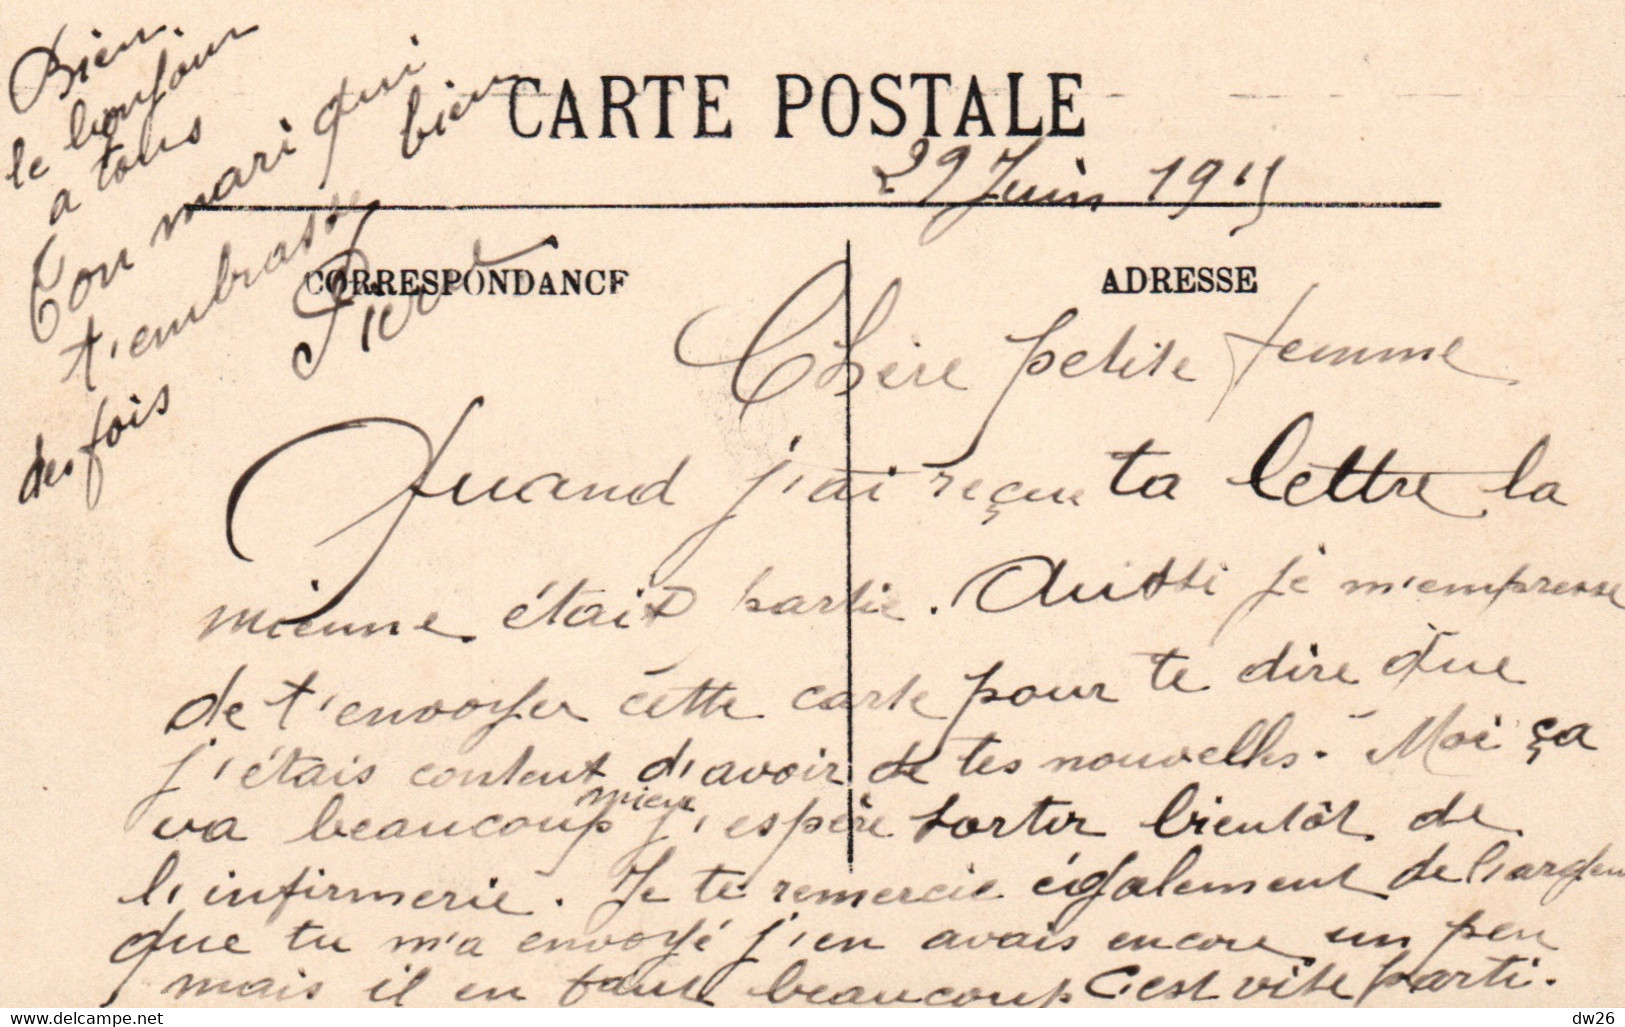 CARTE POSTALE
29 Juin 1915
CORRESPONDANCE
ADRESSE
Chère petite femme
Quand j'ai reçue ta lettre la
mienne était partie. Aussi je m'empresse
de t'envoyer cette carte pour te dire que
j'étais content d'avoir de tes nouvelles. Moi ça
va beaucoup mieux j'espère sortir bientôt de
l'infirmerie. Je te remercie également de l'argent
que tu m'a envoyé j'en avais encore un peu
mais il en faut beaucoup c'est vite parti.
Bien
le bonjour
a tous
Ton mari qui
t'embrasse bien
des fois
Pierre
delcampe.net
dw26